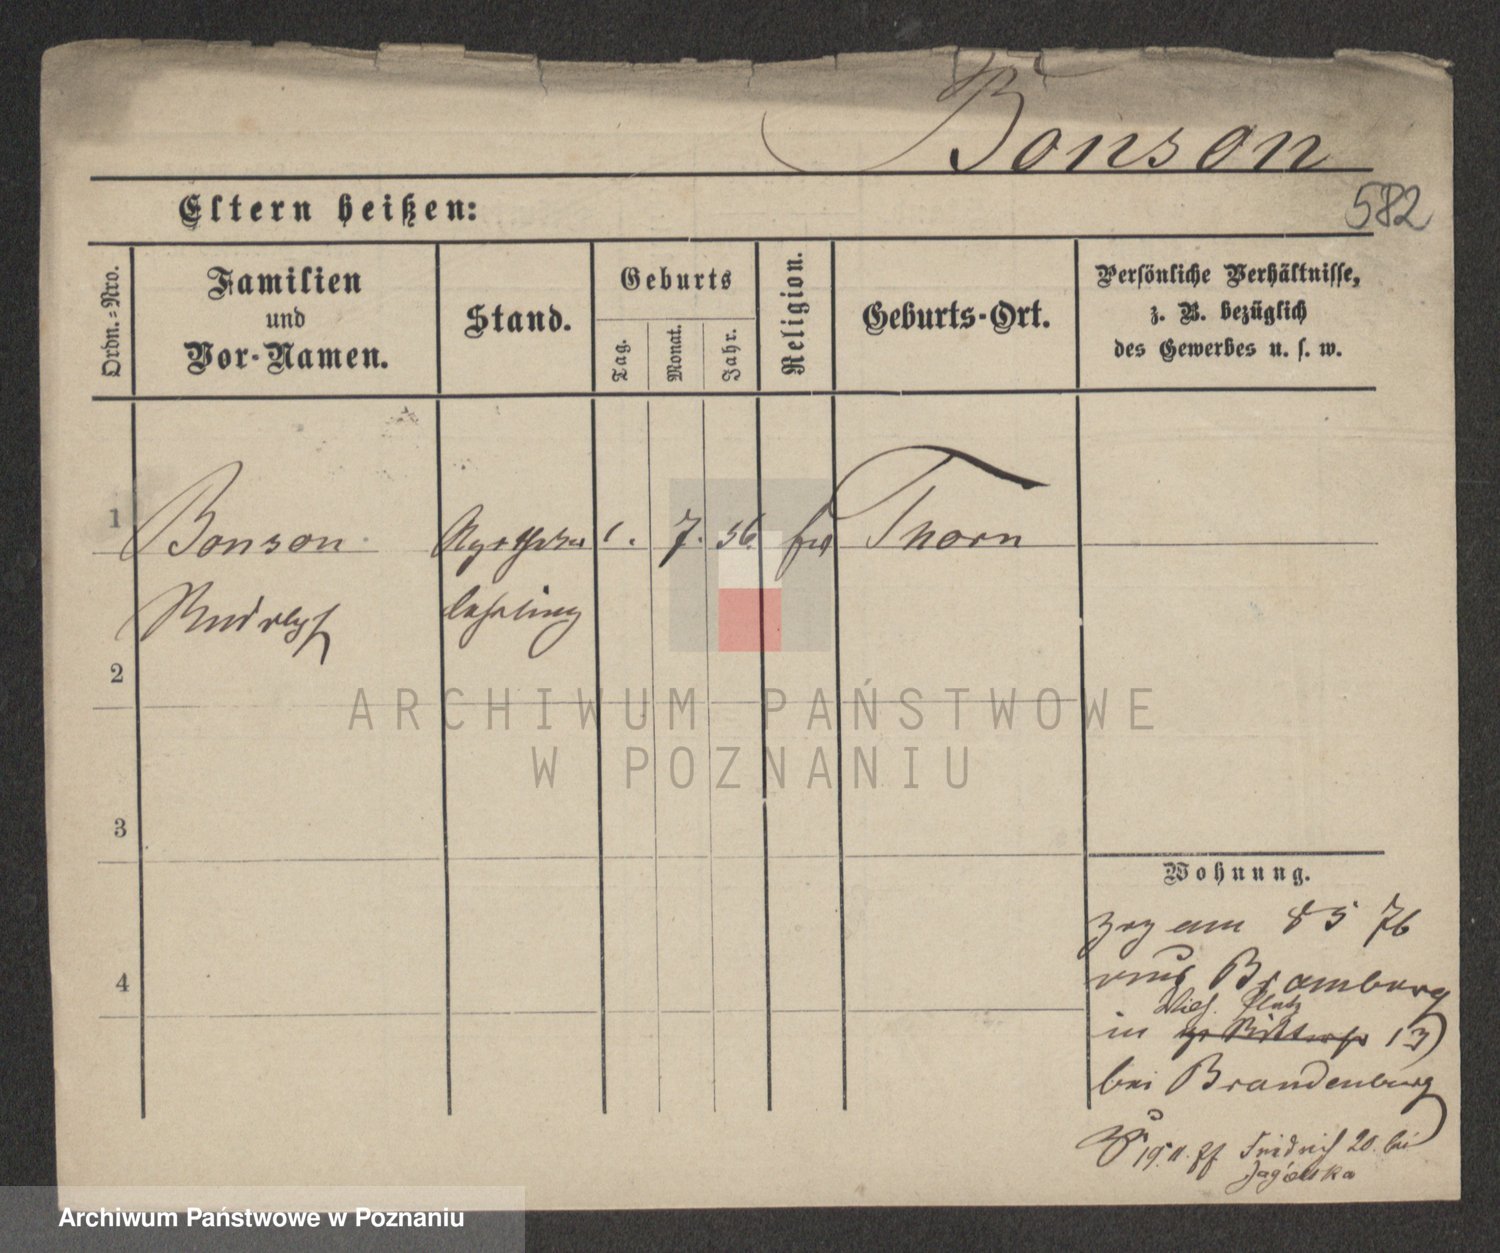 Bonson
582
Eltern heißen:
Ordn.=Nro.
Familien
und
Vor-Namen.
Stand.
Geburts
Tag.
Monat.
Jahr.
Religion.
Geburts-Ort.
Persönliche Verhältnisse,
z. B. bezüglich
des Gewerbes u. s. w.
1
Bonson
Rudolph
Apotheker
lehrling
1.
7.
56.
Thorn
2
3
4
Wohnung.
am 8 5 76
aus Bromberg
Wilh. Platz
in 13
bei Brandenburg
19. 11. 77 Friedrich 20. bei
Jagielska
ARCHIWUM PAŃSTWOWE
W POZNANIU
Archiwum Państwowe w Poznaniu